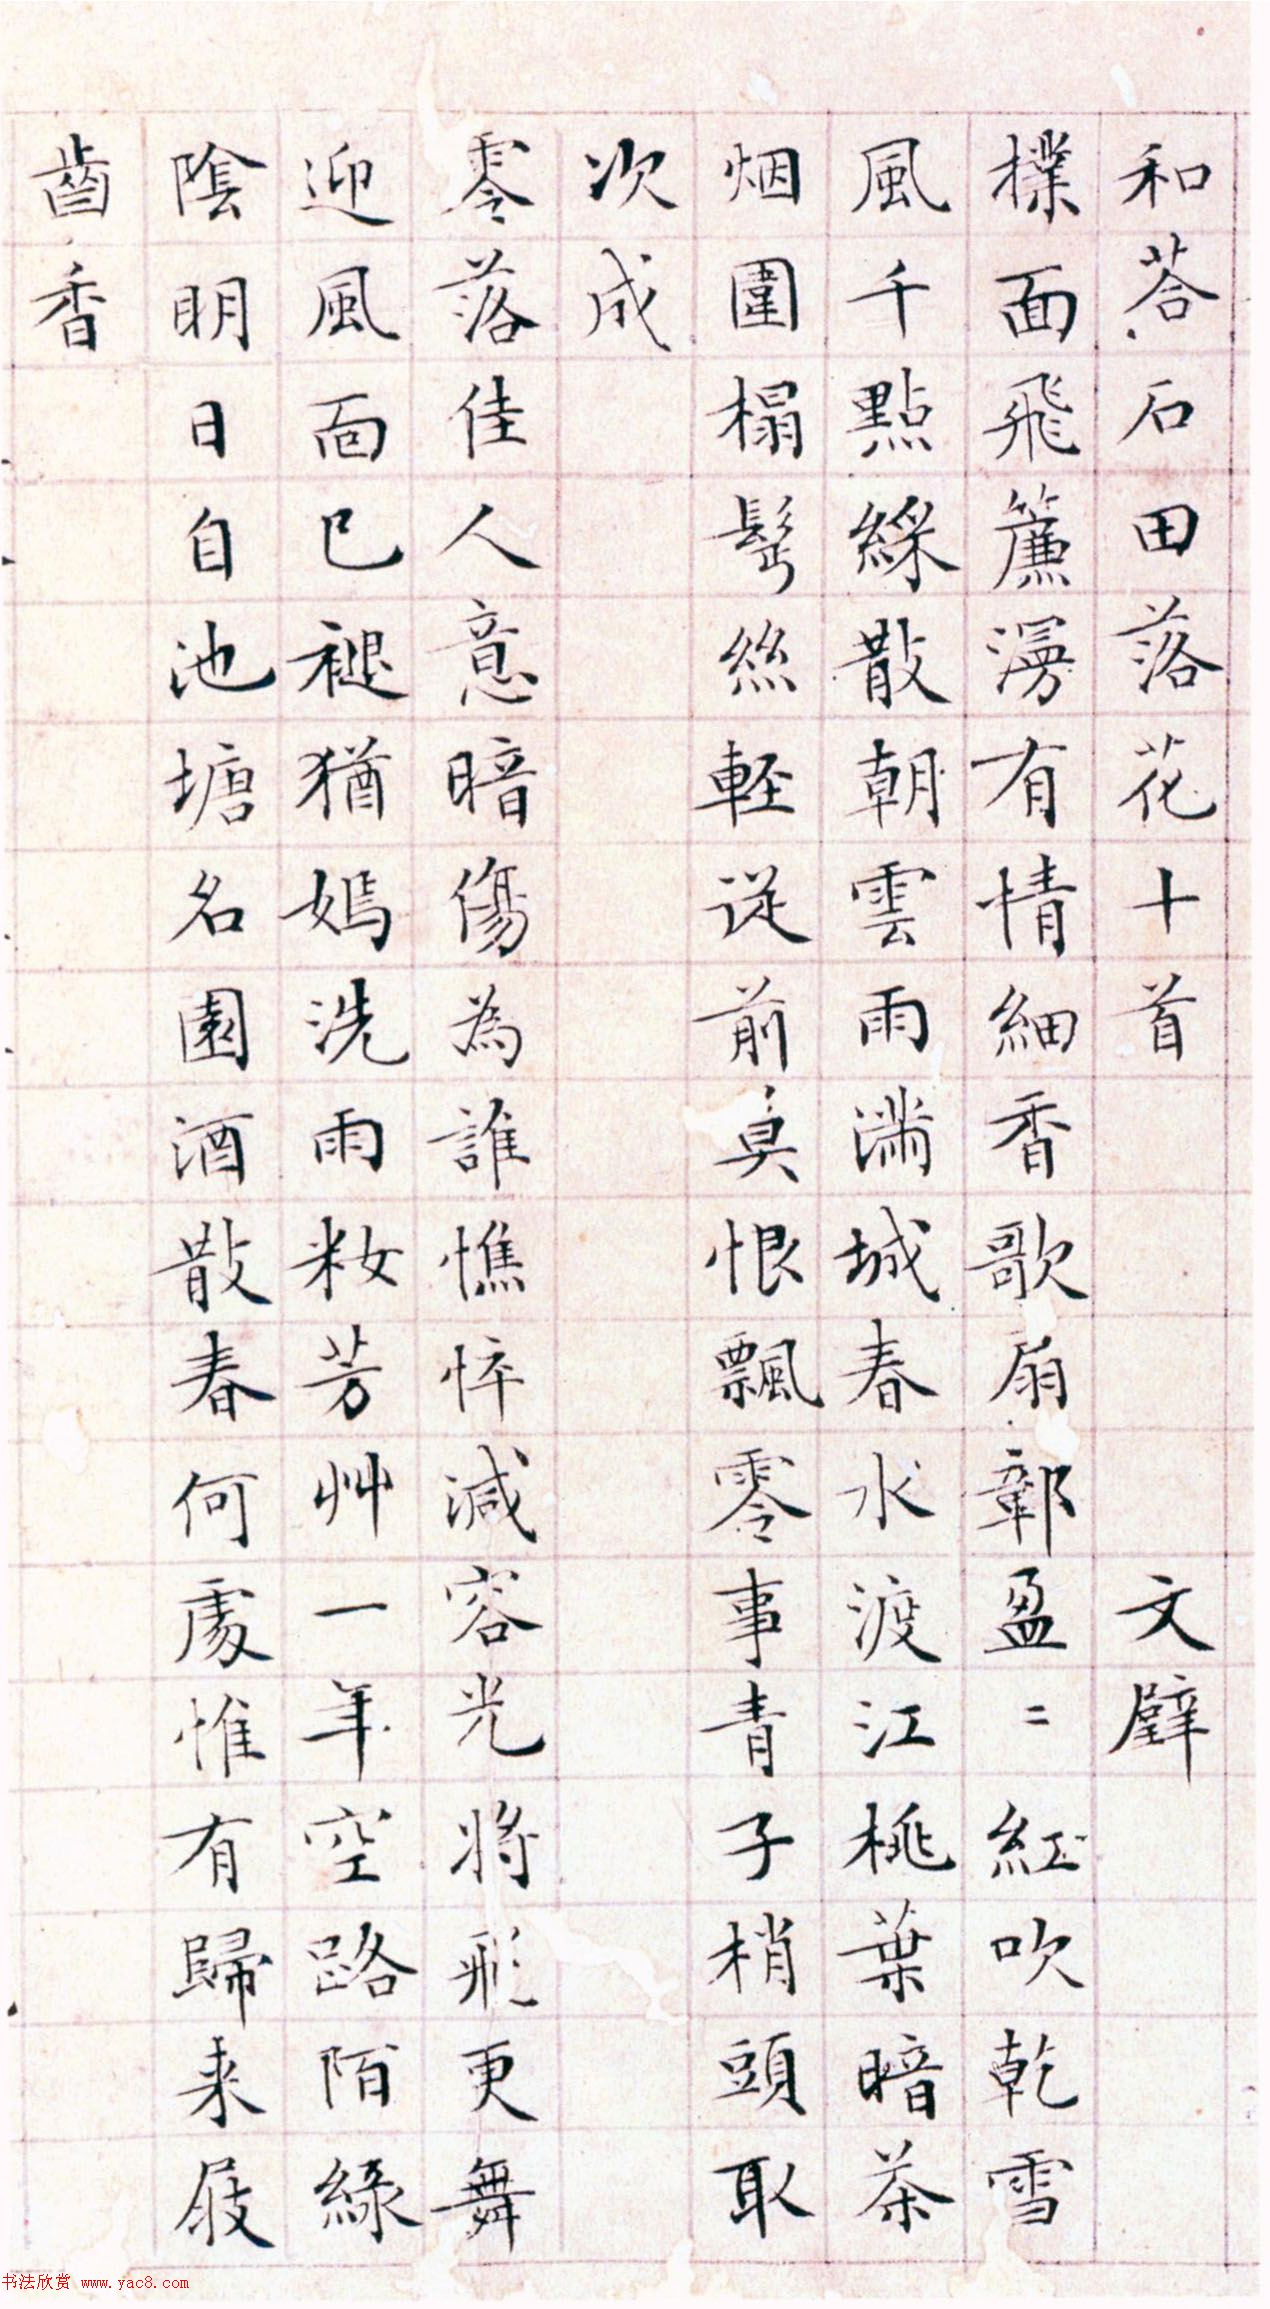 和荅石田落花十首 文璧
撲面飛簾漫有情細香歌扇鄣盈二紅吹乾雪
風千點綵散朝雲雨滿城春水渡江桃葉暗茶
烟圍榻鬂絲軽從前莫恨飄零事青子梢頭取
次成
零落佳人意暗傷為誰憔悴減容光將飛更舞
迎風面已褪猶嫣洗雨粧芳艸一年空路陌綠
陰明日自池塘名園酒散春何處惟有歸来屐
齒香
书法欣赏 www.yac8.com